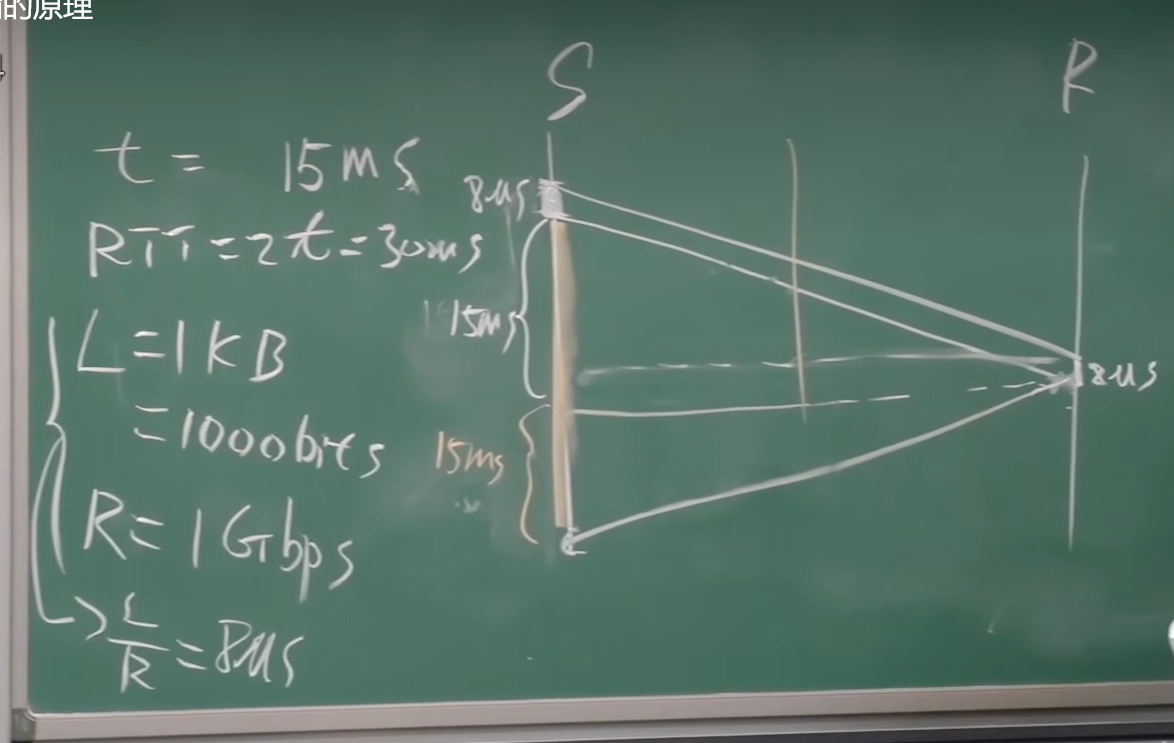 的原理
S
R
t = 15ms
RTT=2t=30ms
L=1KB
=1000bits
R=1Gbps
L/R=8us
8us
15ms
15ms
8us